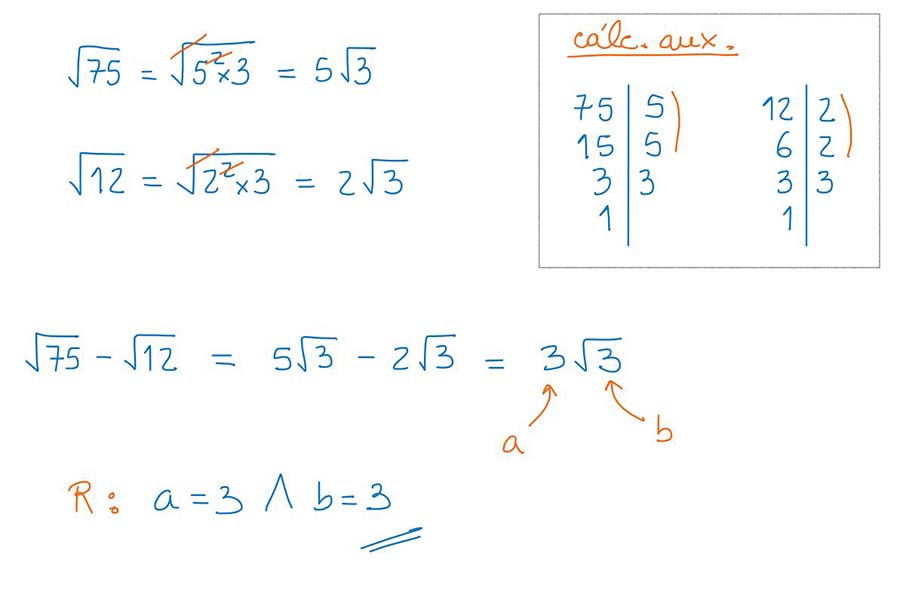 √75 = √5²×3 = 5√3
√12 = √2²×3 = 2√3
cálc. aux.
75 | 5
15 | 5
3 | 3
1 |
12 | 2
6 | 2
3 | 3
1 |
√75 − √12 = 5√3 − 2√3 = 3√3
a b
R: a = 3 ∧ b = 3